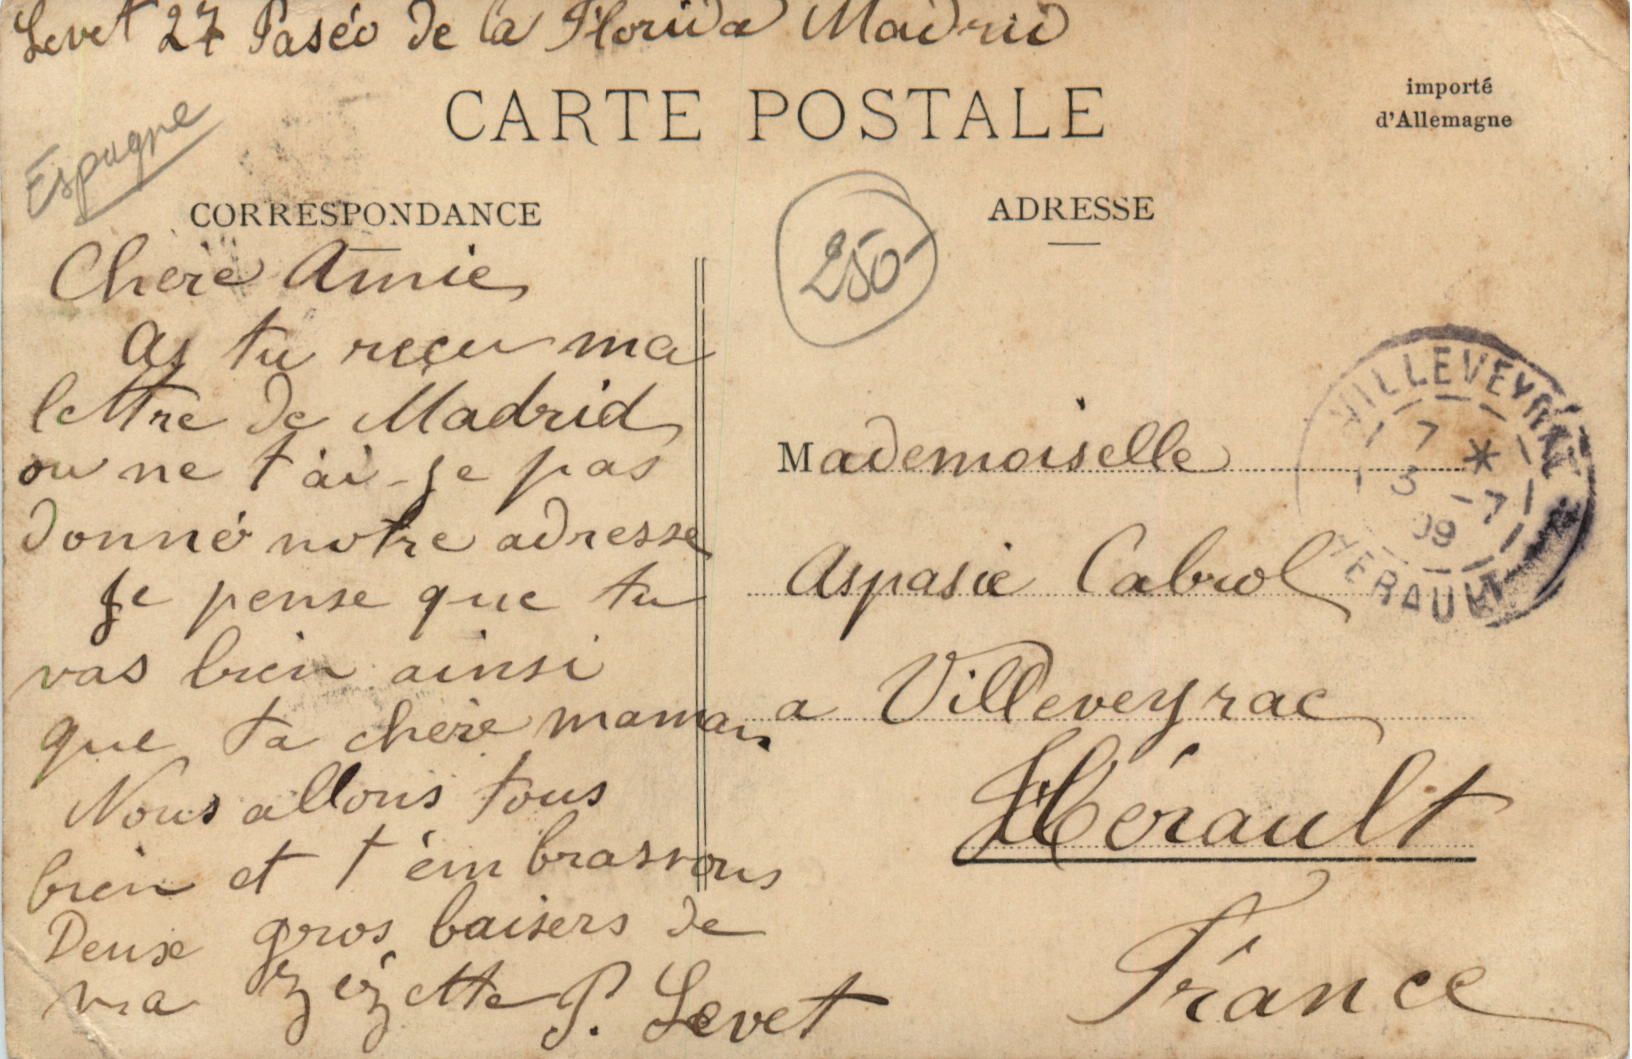 Levet 27 Paséo de la Florida Madrid
CARTE POSTALE
importé
d'Allemagne
Espagne
CORRESPONDANCE
ADRESSE
250-
Chère Amie
As tu reçu ma
lettre de Madrid
ou ne t'ai-je pas
donné notre adresse
Je pense que tu
vas bien ainsi
que ta chère maman
Nous allons tous
bien et t'embrassons
Deux gros baisers de
ma Zézette P. Levet
Mademoiselle
Aspasie Cabrol
a Villeveyrac
Hérault
France
VILLEVEYRAC
7 *
3 -7
09
HERAULT